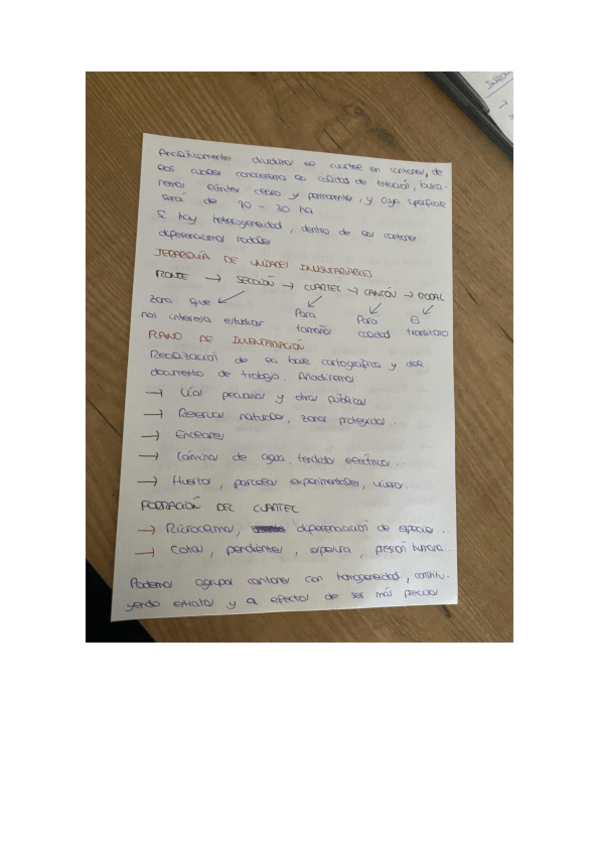 Analíticamente dividimos el cuartel en cantones, de
los cuales conoceremos la calidad de estación, busca-
remos límites claros y permanentes, y cuya superficie
será de 20 - 30 ha
Si hay heterogeneidad, dentro de los cantones
diferenciamos rodales
JERARQUÍA DE UNIDADES INVENTARIABLES
MONTE → SECCIÓN → CUARTEL → CANTÓN → RODAL
zona que
nos interesa estudiar
Para
tamaño
Para
calidad
Es
transitorio
PLANO DE INVENTARIACIÓN
Realización de la base cartográfica y del
documento de trabajo. Añadiremos:
→ Vías pecuarias y obras públicas
→ Reservas naturales, zonas protegidas...
→ Enclaves
→ Láminas de agua, tendido eléctrico...
→ Huertos, parcelas experimentales, vivero...
FORMACIÓN DEL CUARTEL
→ Microclimas, diferenciación de especies...
→ Cotas, pendientes, espesura, presión humana...
Podemos agrupar cantones con homogeneidad, constitu-
yendo estratos y a efectos de ser más precisos
INVENTA
→